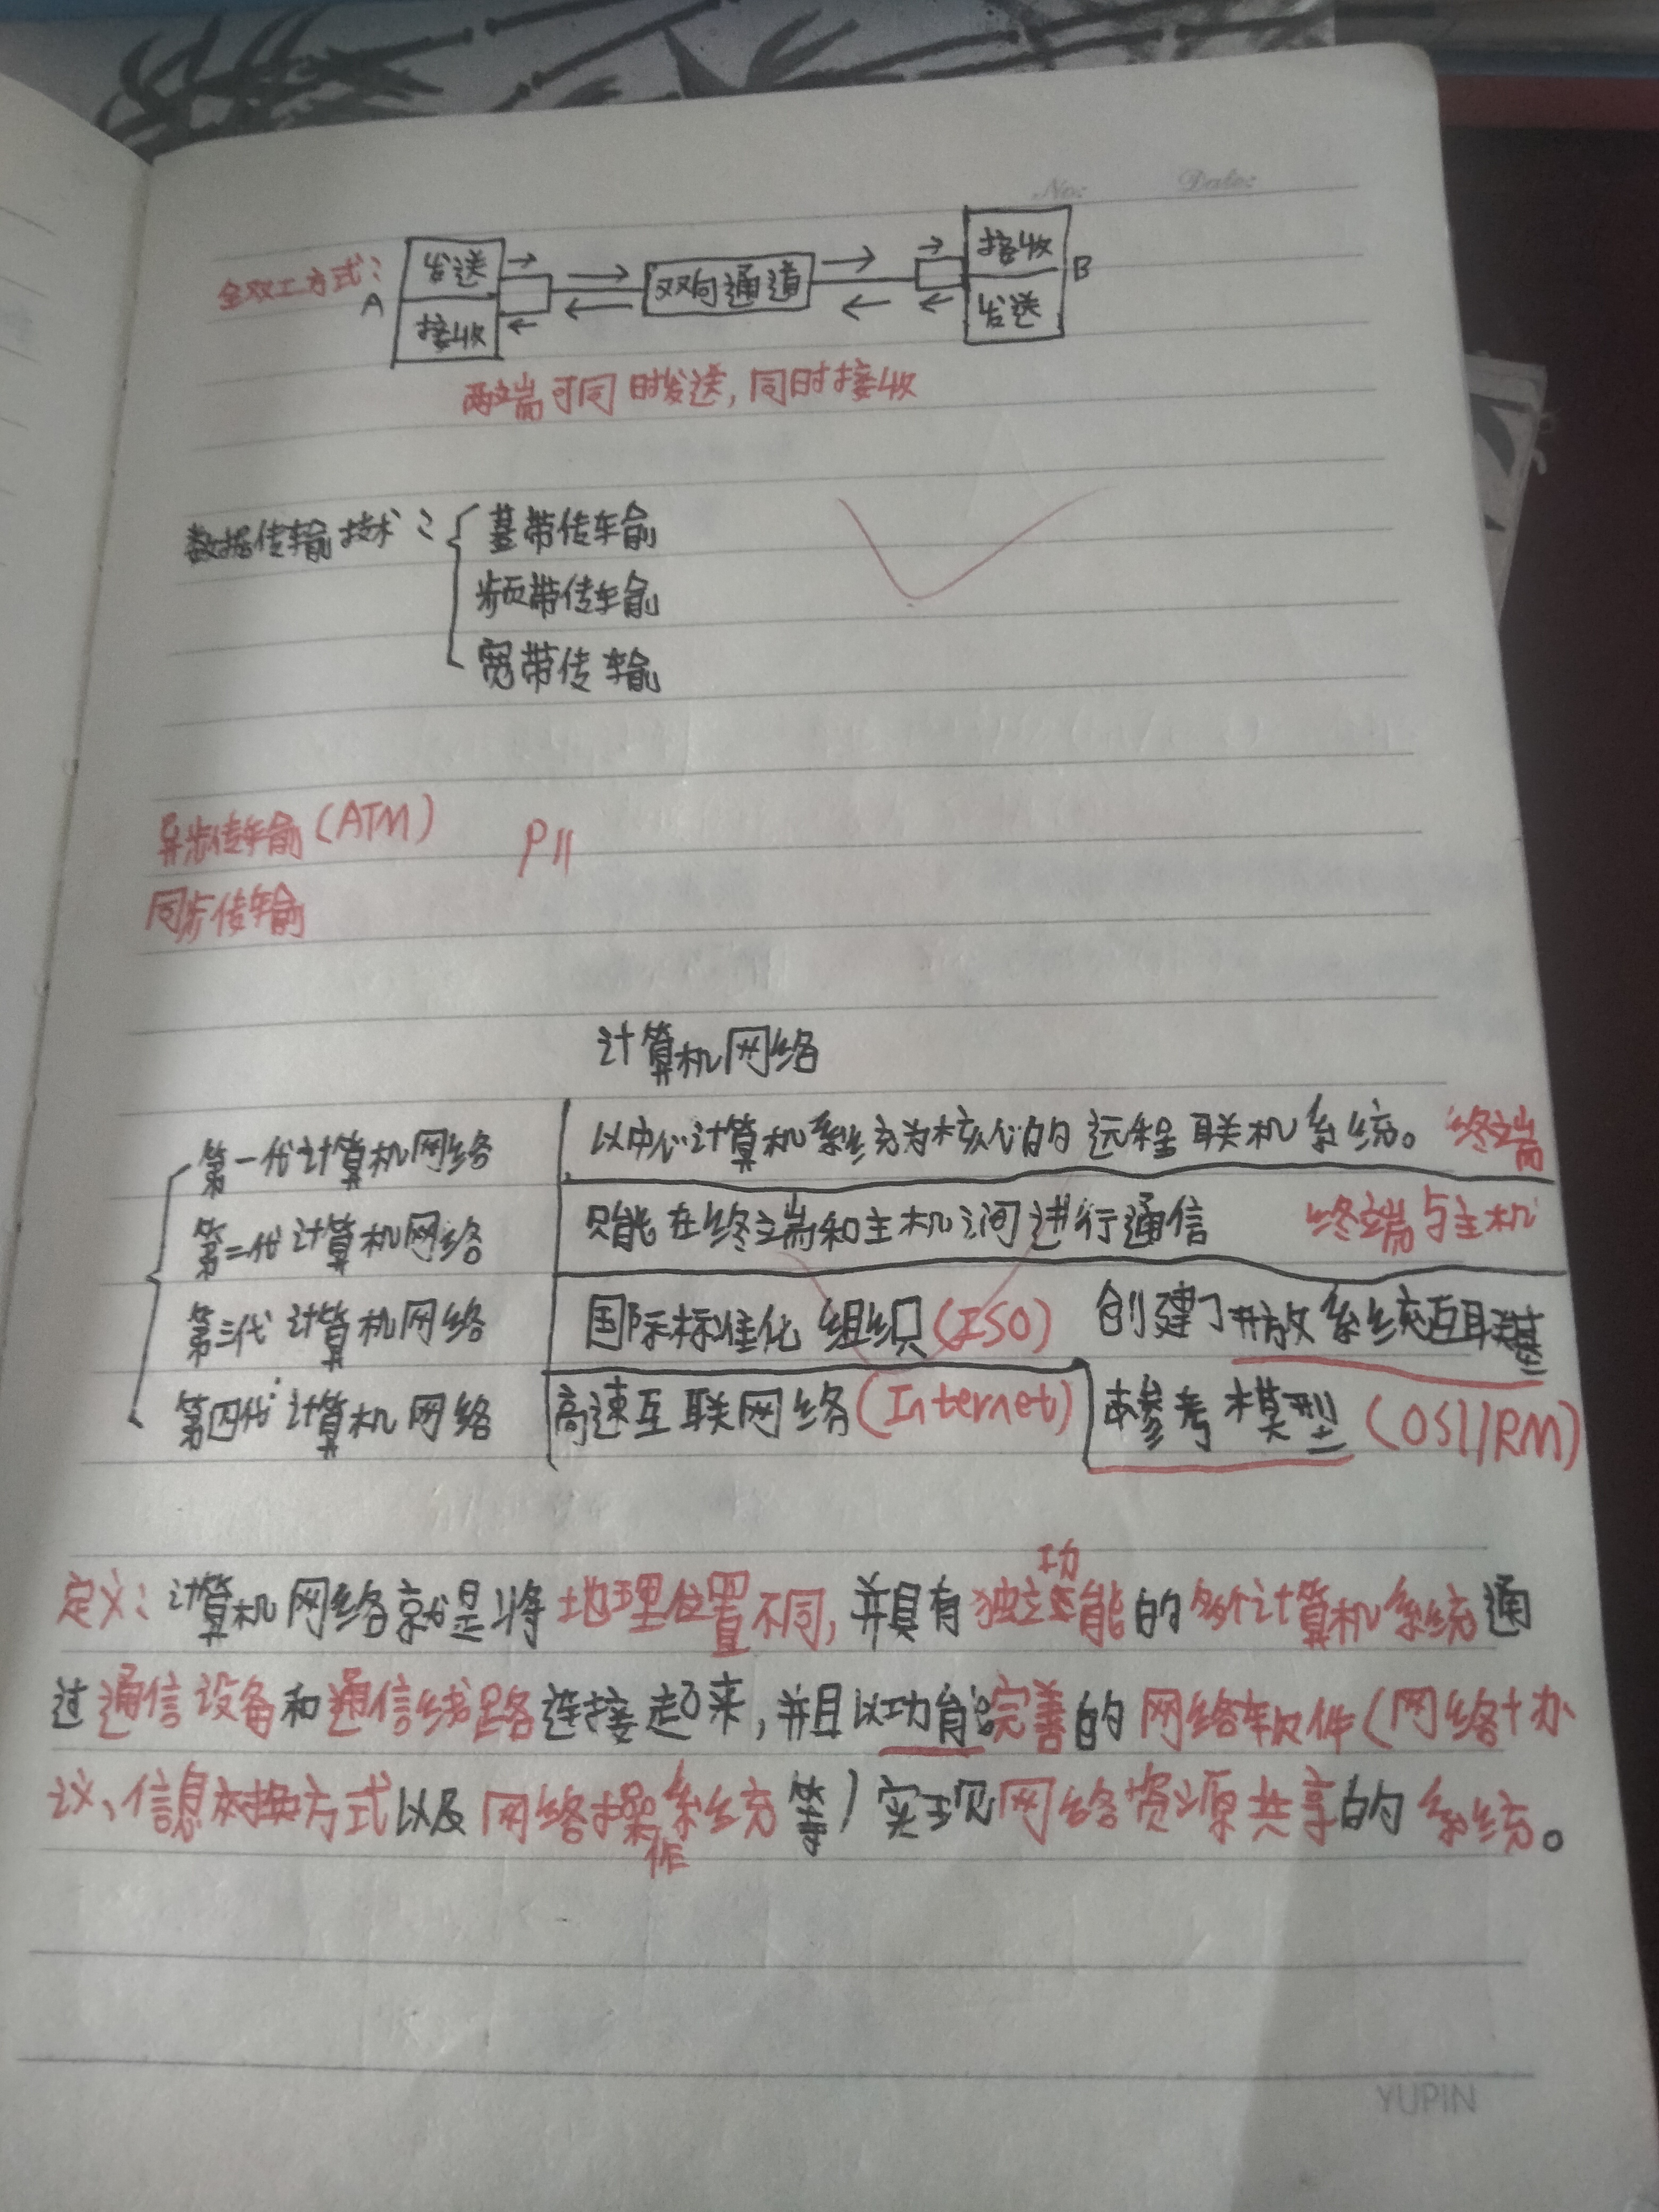 No: Date:
全双工方式: A 发送 → → 双向通道 → → 接收 B
接收 ← ← ← ← 发送
两端可同时发送,同时接收
数据传输技术: 基带传输
频带传输
宽带传输
异步传输(ATM) P11
同步传输
计算机网络
第一代计算机网络 以中心计算机系统为核心的远程联机系统。终端
第二代计算机网络 只能在终端和主机之间进行通信 终端与主机
第三代计算机网络 国际标准化组织(ISO) 创建了开放系统互联基
第四代计算机网络 高速互联网络(Internet) 本参考模型(OSI/RM)
定义:计算机网络就是将地理位置不同,并具有独立功能的多个计算机系统通
过通信设备和通信线路连接起来,并且以功能完善的网络软件(网络协
议、信息交换方式以及网络操作系统等)实现网络资源共享的系统。
YUPIN